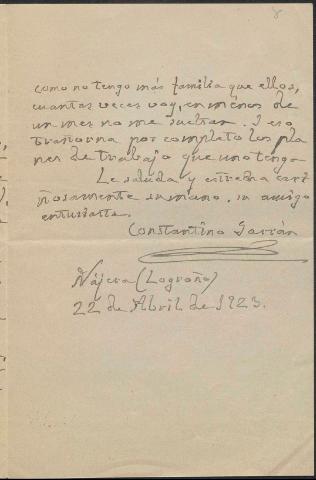 8
como no tengo más familia que ellos,
cuantas veces voy, en ménos de
un mes no me sueltan. Y eso
trastorna por completo los pla
nes de trabajo que uno tenga
Le saluda y estrecha cari
ñosamente su mano, su amigo
entusiasta
Constantino Garrán
Nájera (Logroño)
22 de Abril de 1923.